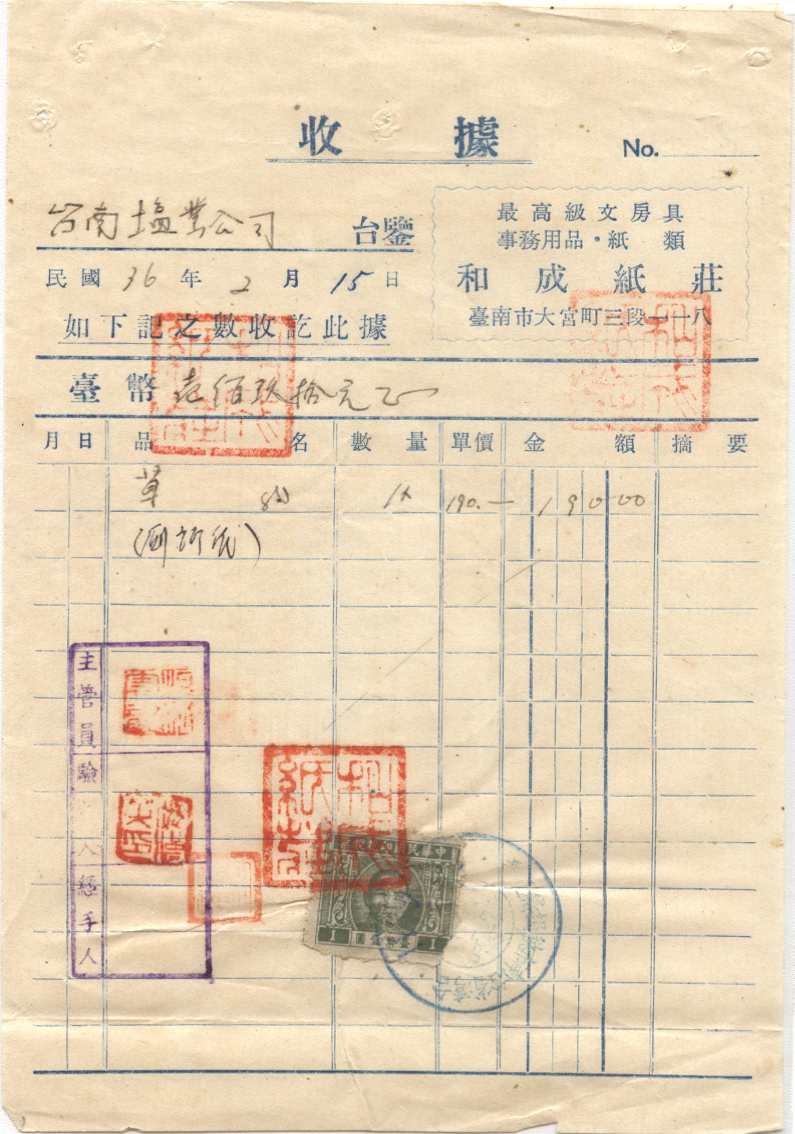 收據
No.
台南塩業公司 台鑒
最高級文房具
事務用品・紙類
和成紙莊
臺南市大宮町三段一一八
民國36年2月15日
如下記之數收訖此據
臺幣 壱佰玖拾元正
月 日 品名 數量 單價 金額 摘要
草 190.— 190 00
主管員
驗
經手人
和成紙莊
1 1